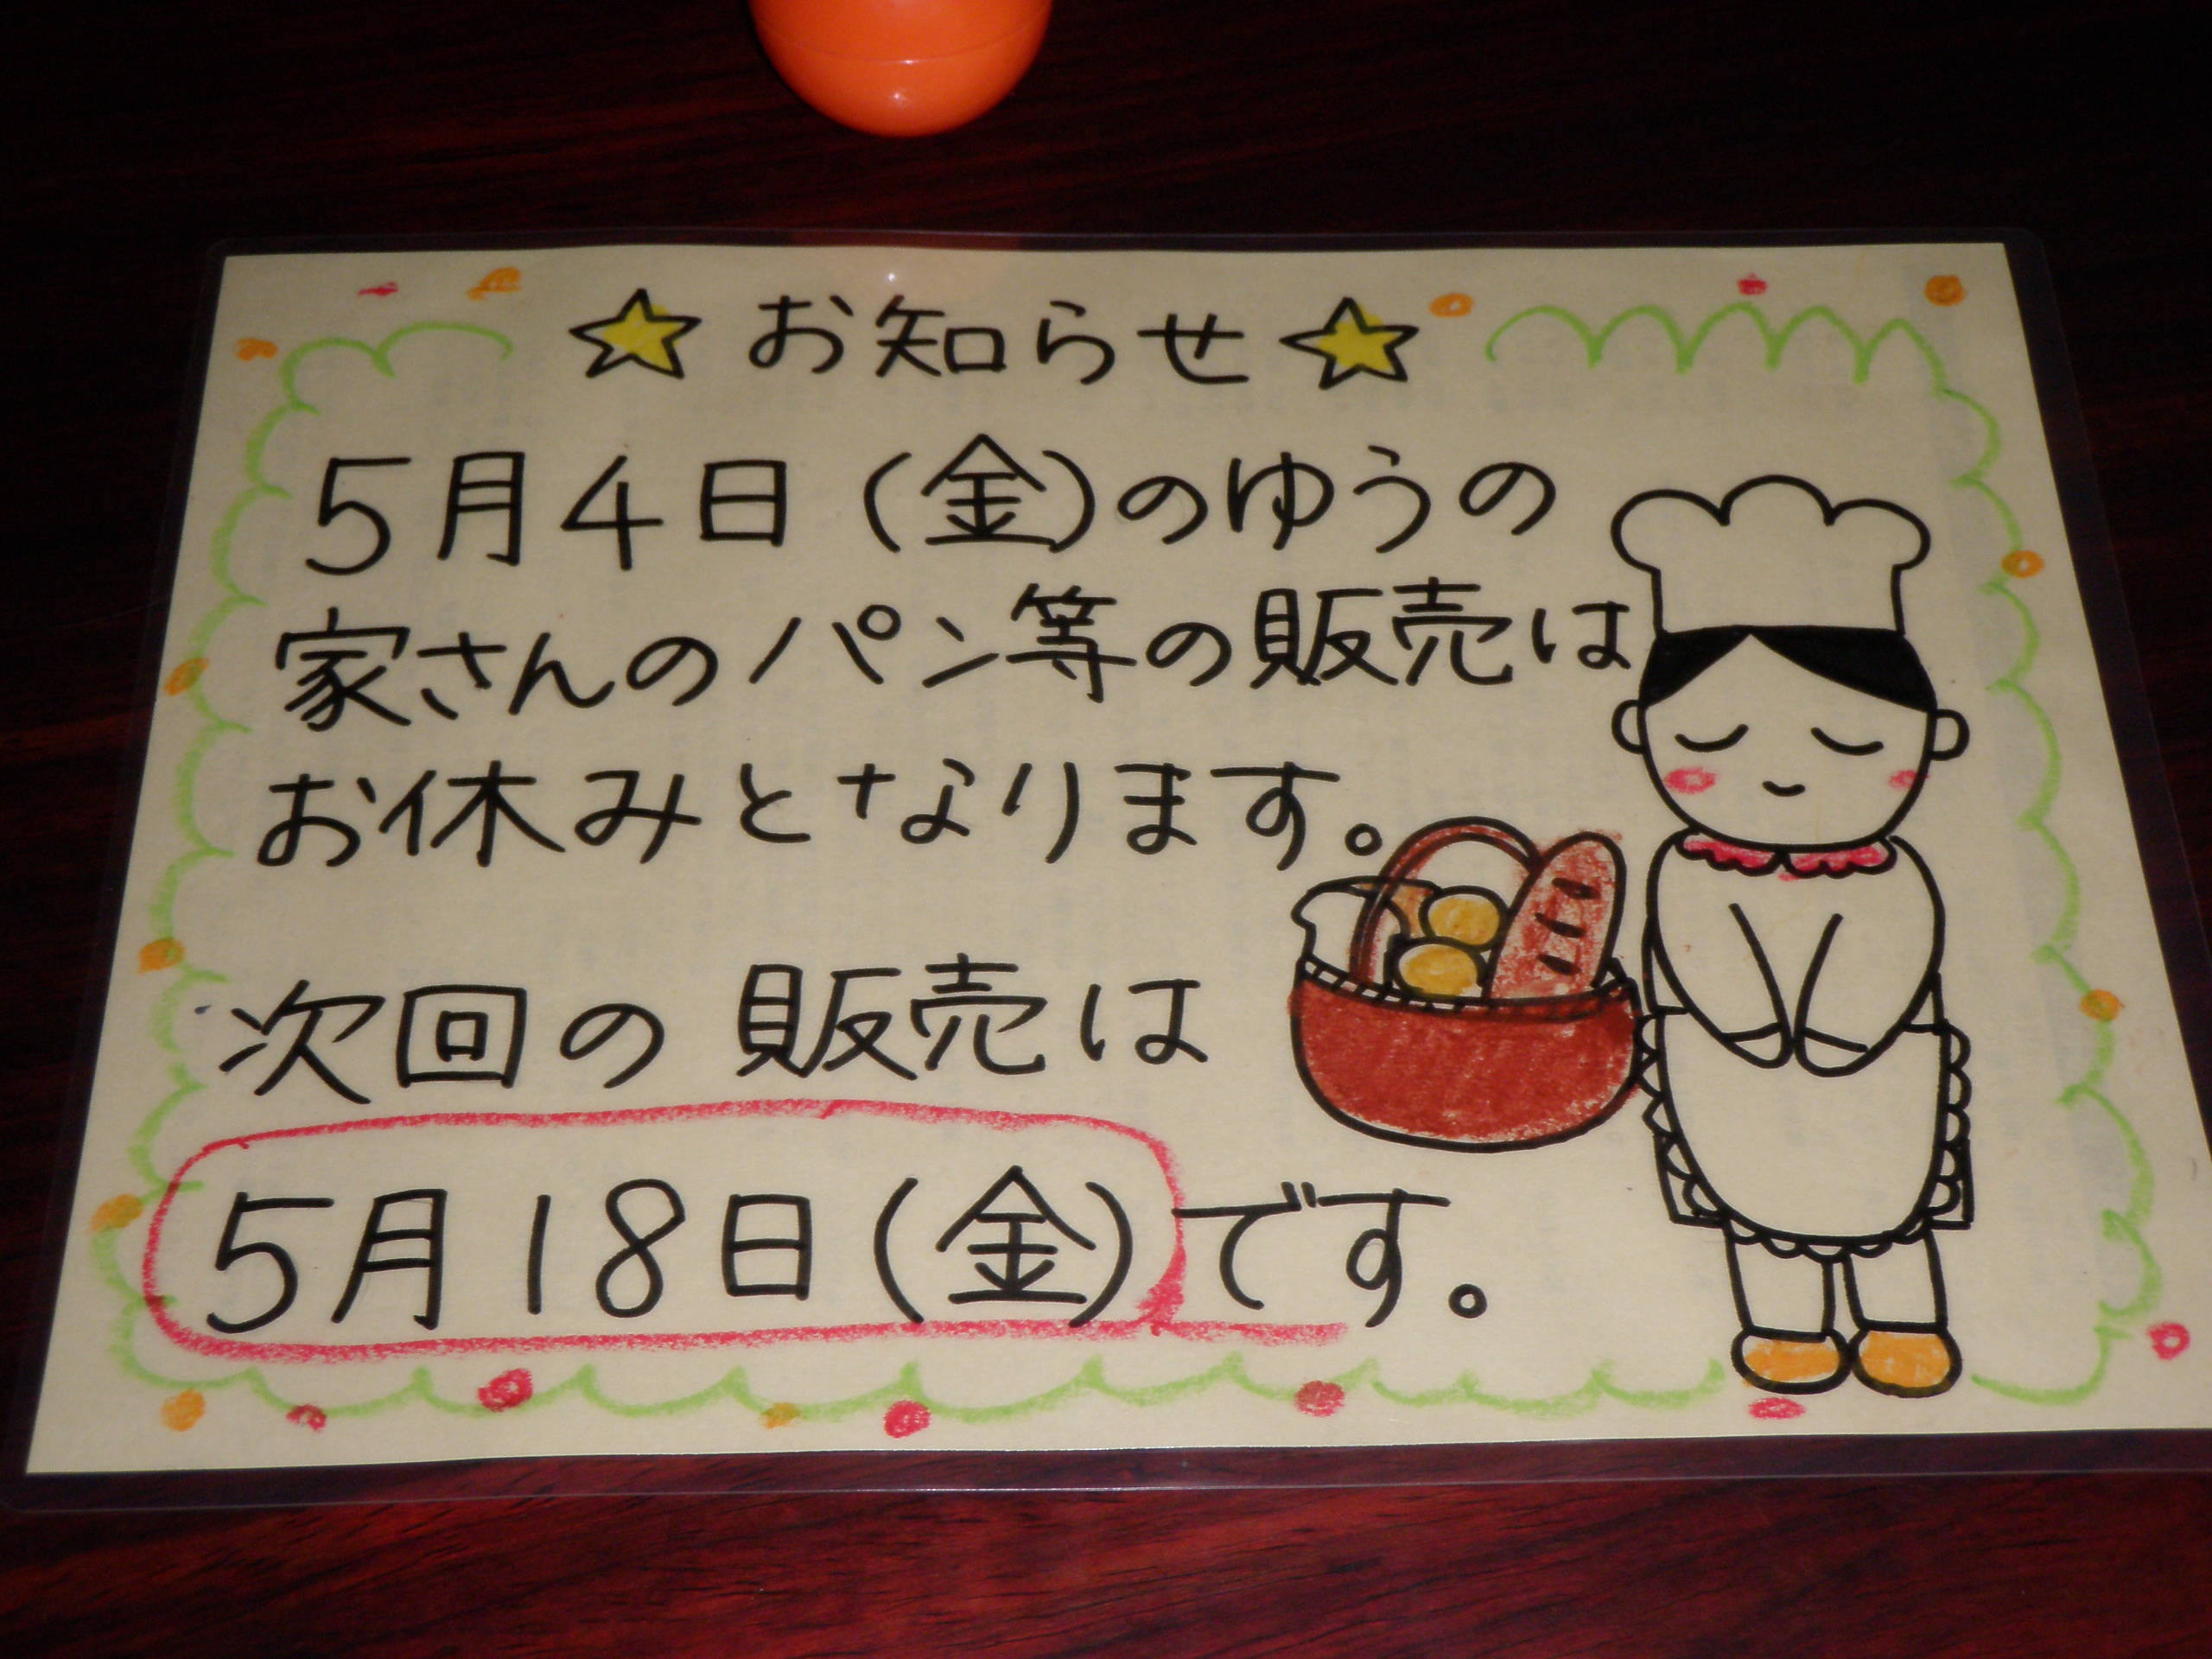 ☆お知らせ☆
5月4日(金)のゆうの
家さんのパン等の販売は
お休みとなります。
次回の販売は
5月18日(金)です。